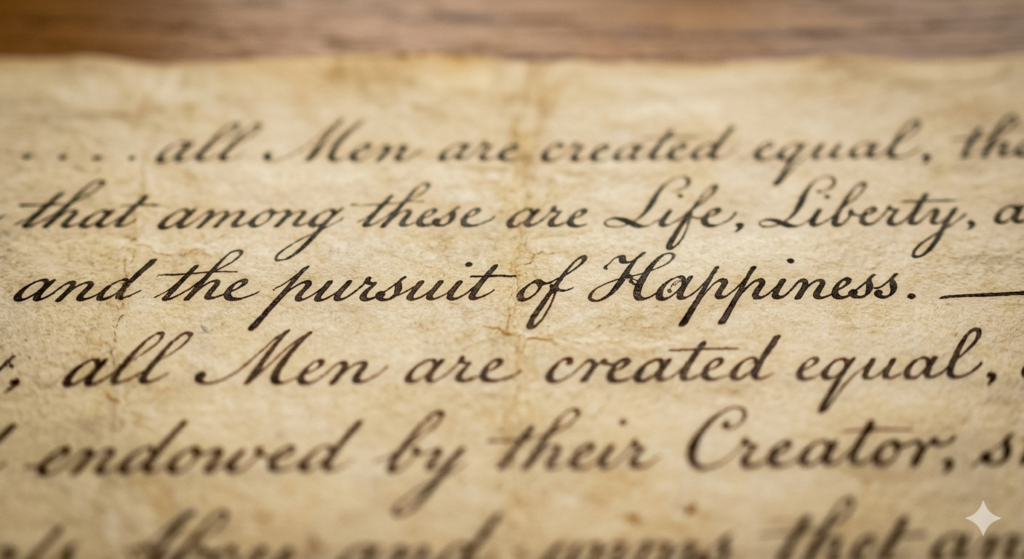 .... all Men are created equal, the
that among these are Life, Liberty, a
and the pursuit of Happiness. —
, all Men are created equal,
endowed by their Creator, s
and that an